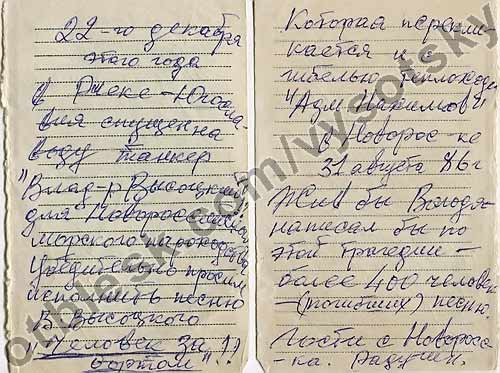 22-го декабря
этого года
в Риеке - Югосла-
вия спущен на
воду танкер
"Влад-р Высоцкий"
для Новороссийского
морского пароходства
Убедительно просим
исполнить песню
В Высоцкого
"Человек за !!
бортом"
Которая перекли-
кается и с
гибелью теплохода
"Адм Нахимов"
в Новорос-ке
31 августа 86г
Жив бы Володя
написал бы по
этой трагедии -
более 400 человек
- (погибших) песню.
Гости с Новорос-
-ка.
otblesk.com/vysotsky